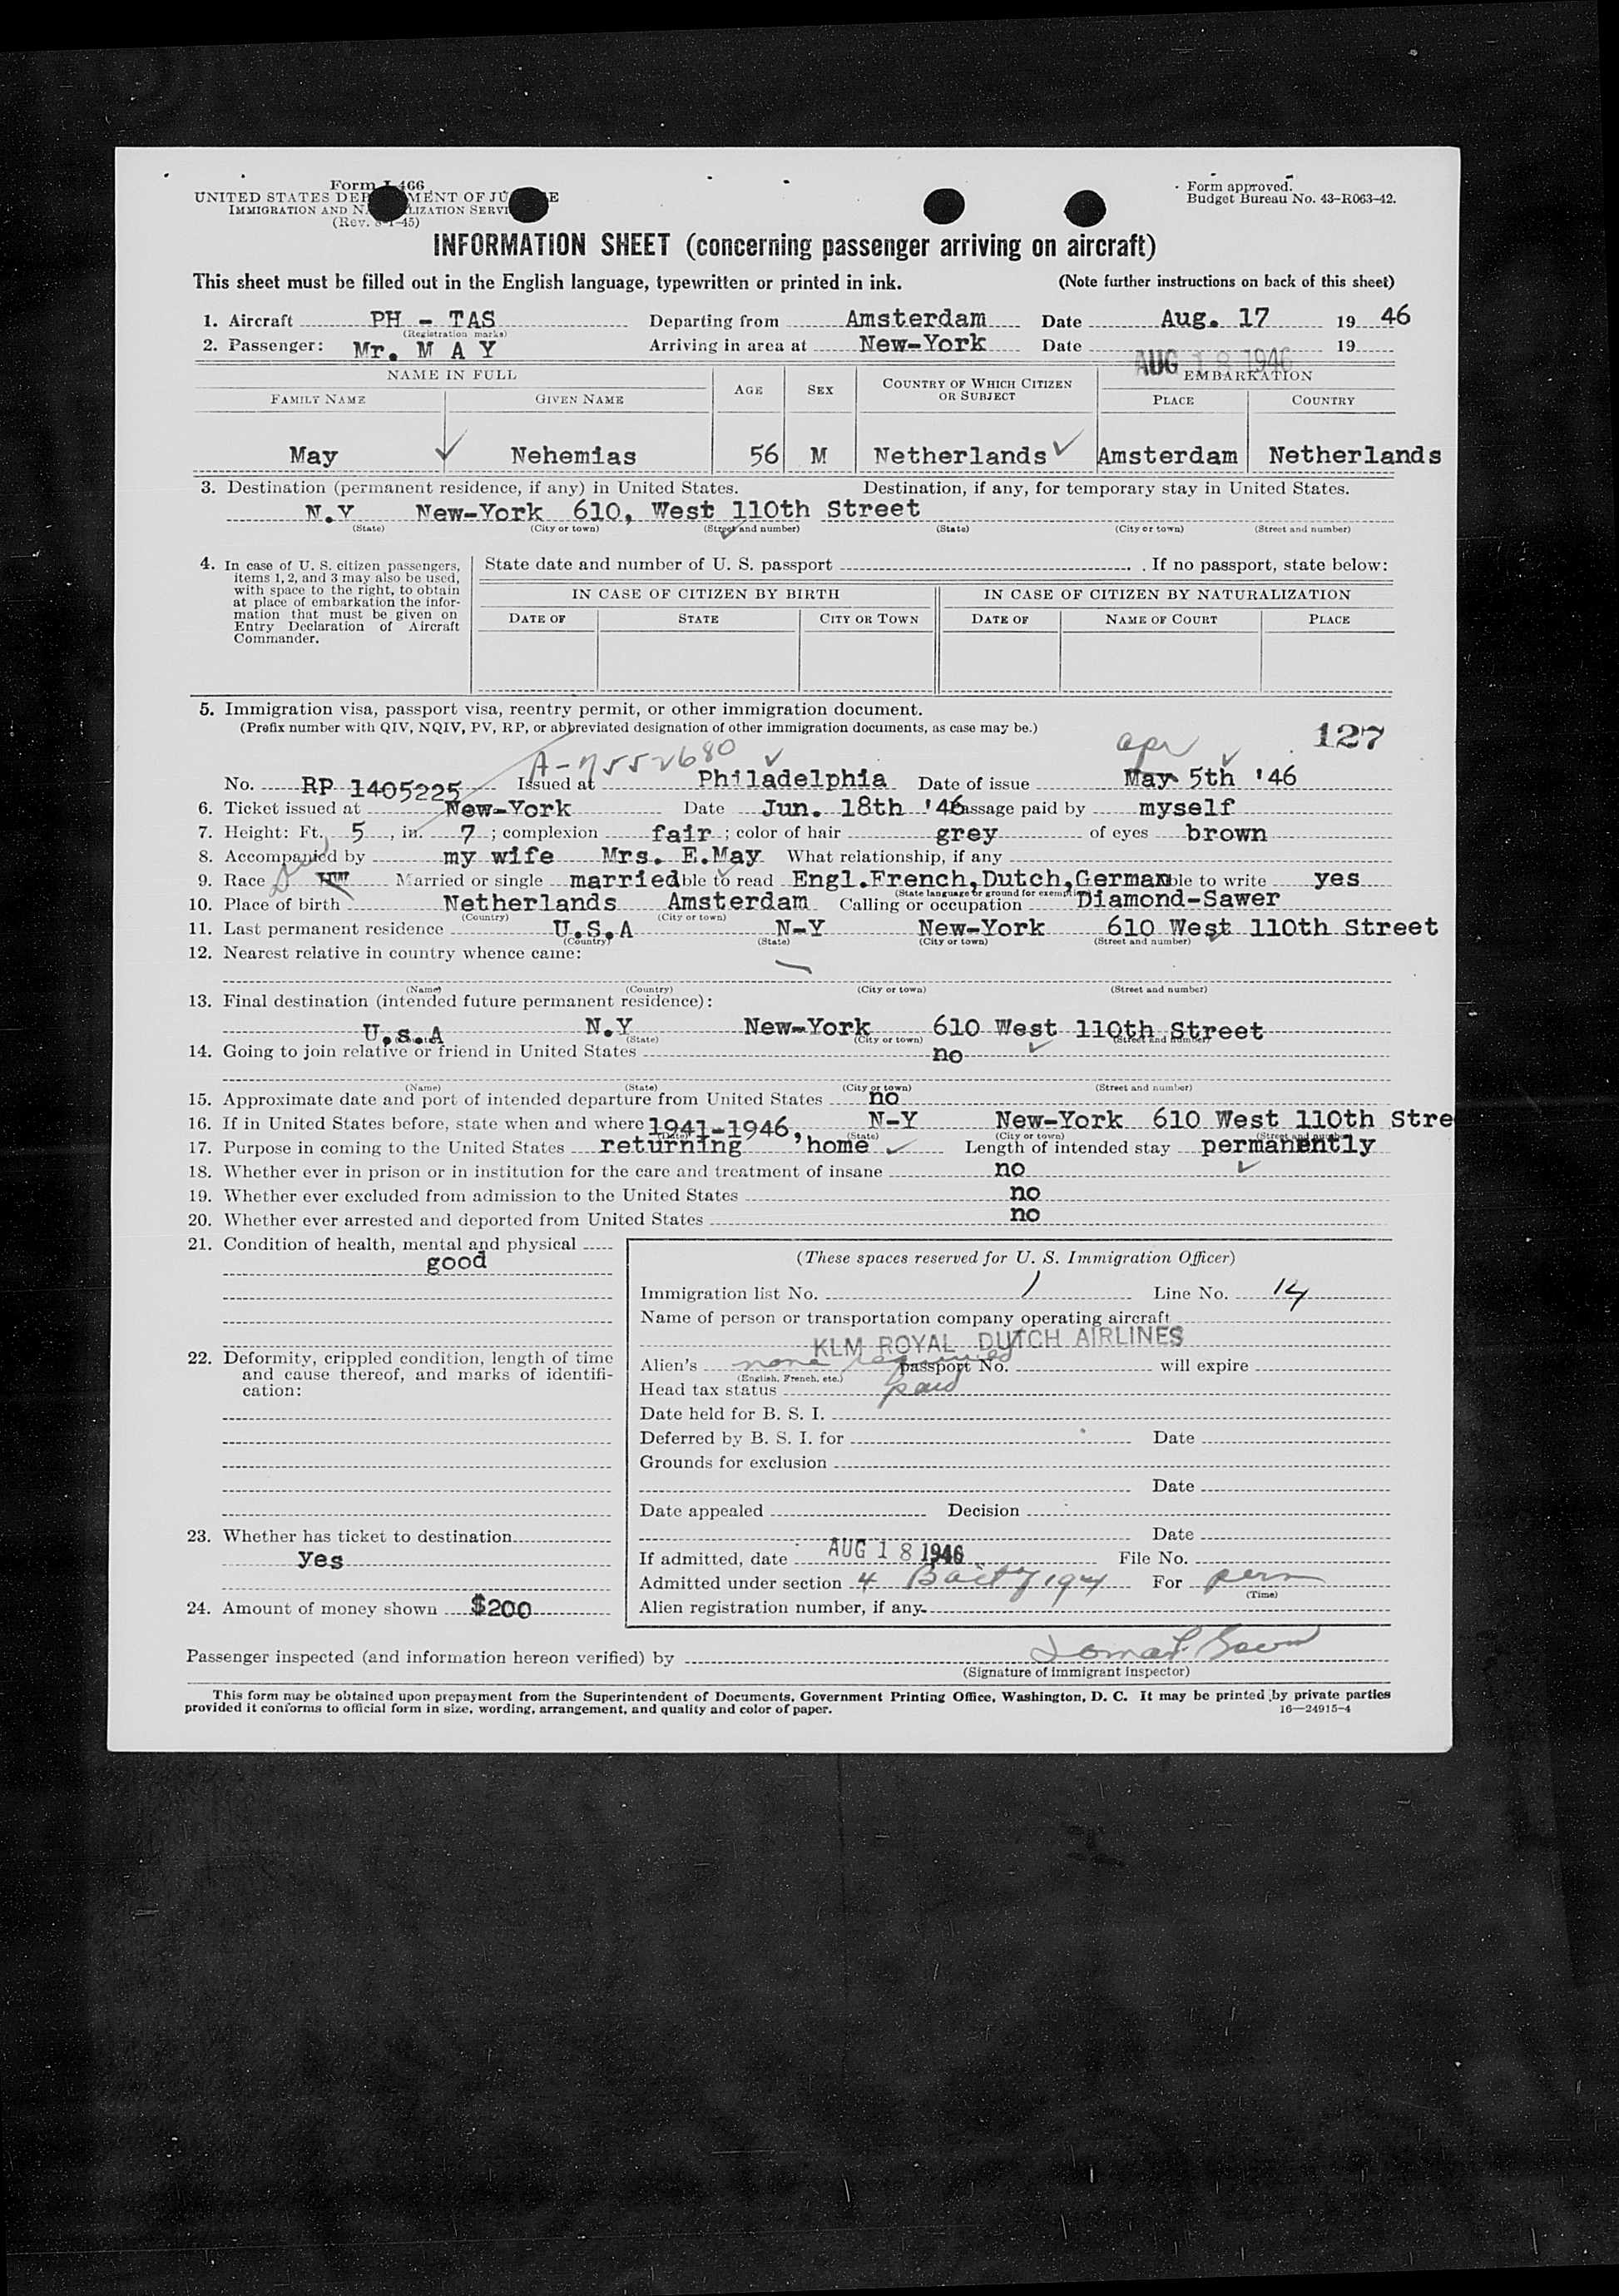 Form I-466
UNITED STATES DEPARTMENT OF JUSTICE
IMMIGRATION AND NATURALIZATION SERVICE
(Rev. 8-1-45)
Form approved.
Budget Bureau No. 43-R063-42.
INFORMATION SHEET (concerning passenger arriving on aircraft)
This sheet must be filled out in the English language, typewritten or printed in ink. (Note further instructions on back of this sheet)
1. Aircraft PH - TAS Departing from Amsterdam Date Aug. 17 19 46
(Registration marks)
2. Passenger: Mr. M A Y Arriving in area at New-York Date AUG 18 1946 19
NAME IN FULL AGE SEX COUNTRY OF WHICH CITIZEN OR SUBJECT EMBARKATION
FAMILY NAME GIVEN NAME PLACE COUNTRY
May Nehemias 56 M Netherlands Amsterdam Netherlands
3. Destination (permanent residence, if any) in United States. Destination, if any, for temporary stay in United States.
N.Y New-York 610, West 110th Street
(State) (City or town) (Street and number) (State) (City or town) (Street and number)
4. In case of U. S. citizen passengers, items 1, 2, and 3 may also be used, with space to the right, to obtain at place of embarkation the information that must be given on Entry Declaration of Aircraft Commander.
State date and number of U. S. passport . If no passport, state below:
IN CASE OF CITIZEN BY BIRTH IN CASE OF CITIZEN BY NATURALIZATION
DATE OF STATE CITY OR TOWN DATE OF NAME OF COURT PLACE
5. Immigration visa, passport visa, reentry permit, or other immigration document.
(Prefix number with QIV, NQIV, PV, RP, or abbreviated designation of other immigration documents, as case may be.)
127
A-7552680 apr
No. RP 1405225 Issued at Philadelphia Date of issue May 5th '46
6. Ticket issued at New-York Date Jun. 18th '46 Passage paid by myself
7. Height: Ft. 5, in. 7; complexion fair; color of hair grey of eyes brown
8. Accompanied by my wife Mrs. E.May What relationship, if any
9. Race HW Married or single married Able to read Engl.French,Dutch,German Able to write yes
(State language or ground for exemption)
10. Place of birth Netherlands Amsterdam Calling or occupation Diamond-Sawer
(Country) (City or town)
11. Last permanent residence U.S.A N-Y New-York 610 West 110th Street
(Country) (State) (City or town) (Street and number)
12. Nearest relative in country whence came:
(Name) (Country) (City or town) (Street and number)
13. Final destination (intended future permanent residence):
U.S.A N.Y New-York 610 West 110th Street
(State) (City or town) (Street and number)
14. Going to join relative or friend in United States no
(Name) (State) (City or town) (Street and number)
15. Approximate date and port of intended departure from United States no
16. If in United States before, state when and where 1941-1946, N-Y New-York 610 West 110th Stre
(Date) (State) (City or town) (Street and number)
17. Purpose in coming to the United States returning home Length of intended stay permanently
18. Whether ever in prison or in institution for the care and treatment of insane no
19. Whether ever excluded from admission to the United States no
20. Whether ever arrested and deported from United States no
21. Condition of health, mental and physical
good
22. Deformity, crippled condition, length of time and cause thereof, and marks of identification:
23. Whether has ticket to destination
yes
24. Amount of money shown $200
(These spaces reserved for U. S. Immigration Officer)
Immigration list No. 1 Line No. 14
Name of person or transportation company operating aircraft
KLM ROYAL DUTCH AIRLINES
Alien's none required passport No. will expire
(English, French, etc.)
Head tax status paid
Date held for B. S. I.
Deferred by B. S. I. for Date
Grounds for exclusion
Date
Date appealed Decision
Date
If admitted, date AUG 18 1946 File No.
Admitted under section 4 B act of 1924 For perm
(Time)
Alien registration number, if any
Passenger inspected (and information hereon verified) by
(Signature of immigrant inspector)
This form may be obtained upon prepayment from the Superintendent of Documents, Government Printing Office, Washington, D. C. It may be printed by private parties
provided it conforms to official form in size, wording, arrangement, and quality and color of paper. 16—24915-4